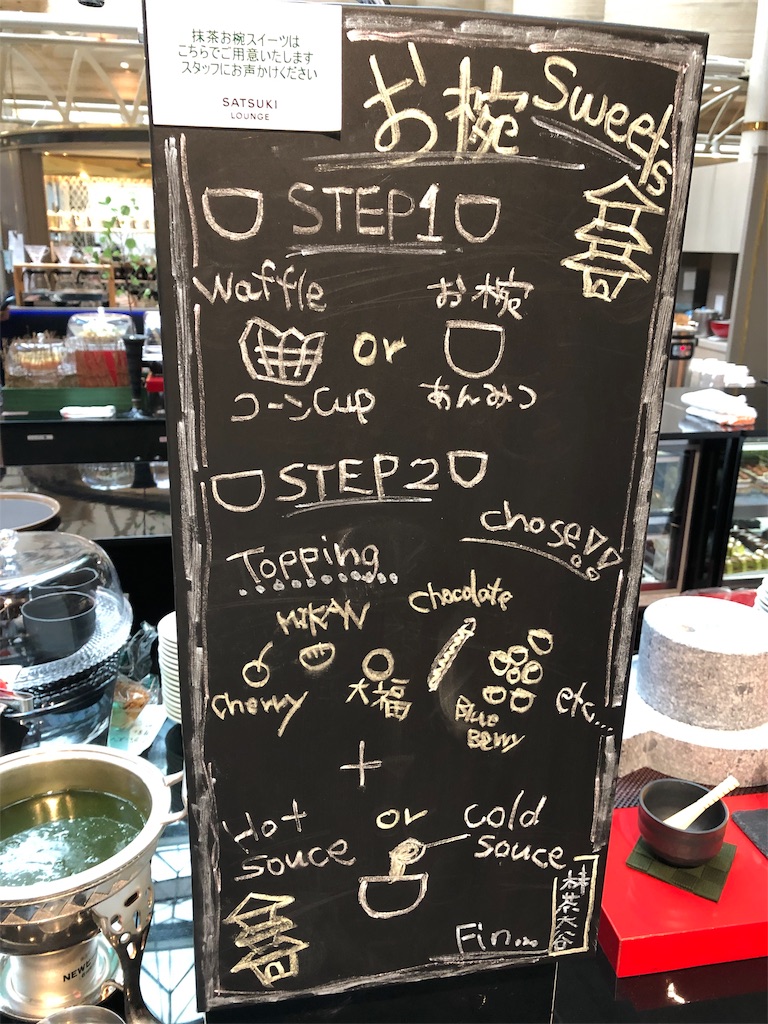 抹茶お椀スイーツは
こちらでご用意いたします
スタッフにお声かけください
SATSUKI
LOUNGE
お椀 Sweets
STEP1
Waffle お椀
or
コーンCup あんみつ
STEP2
chose!!
Topping
MIKAN chocolate
cherry 大福 Blue
Berry
etc...
+
Hot or cold
souce souce
抹茶大谷
Fin...